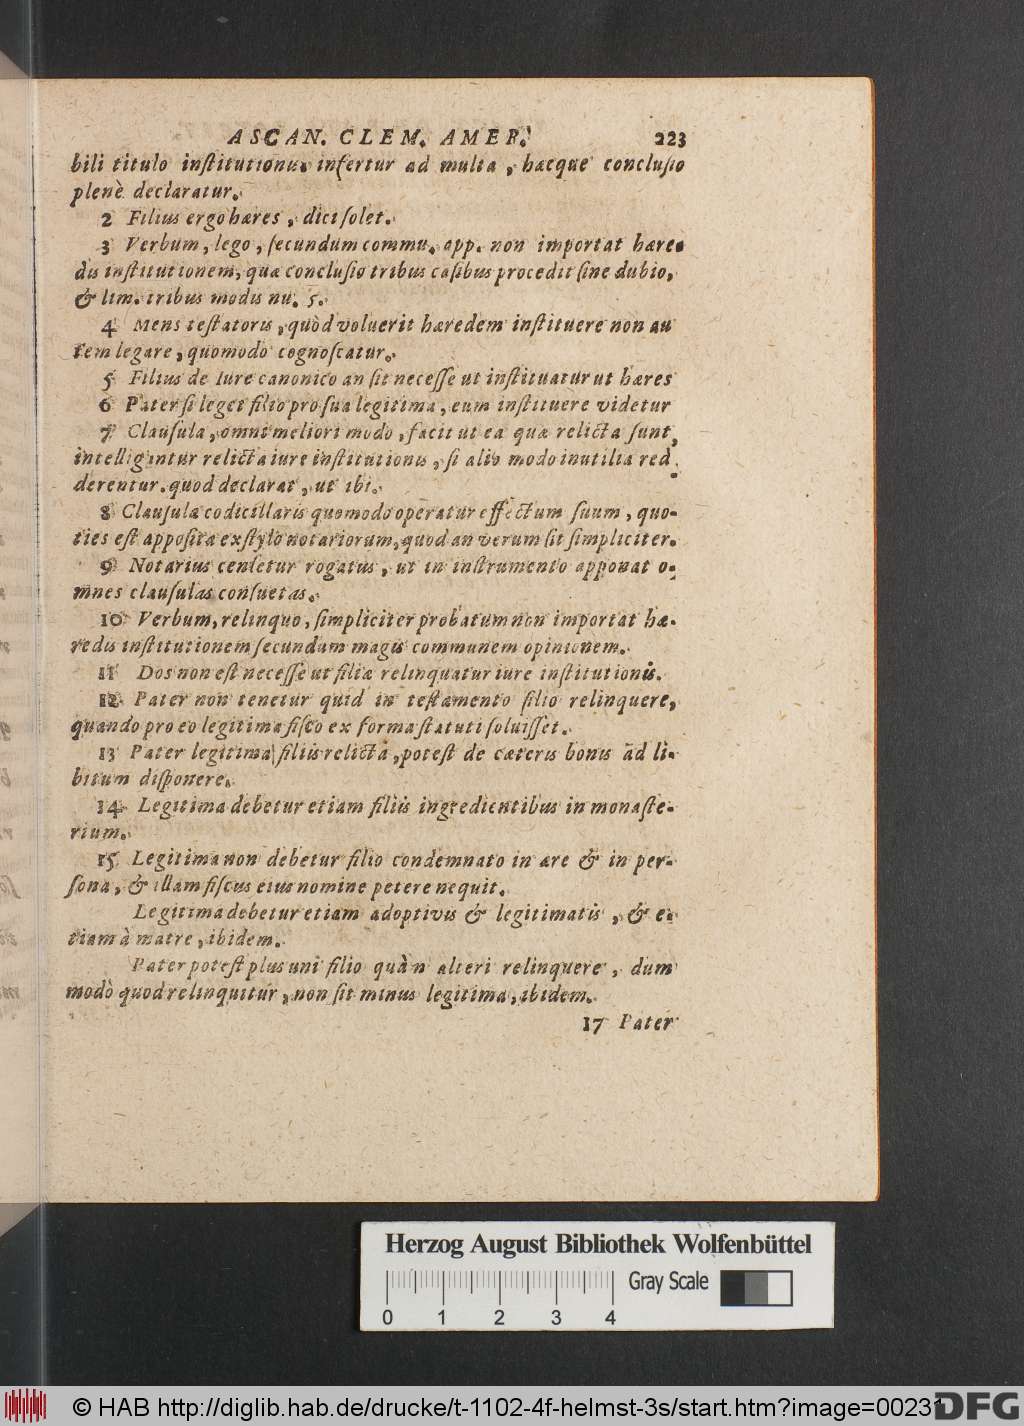 ASCAN. CLEM. AMER. 223
bili titulo institutionis infertur ad multa, hæcque conclusio
plenè declaratur.
2 Filius ergo hæres, dici solet.
3 Verbum, lego, secundum commu. opp. non importat hære-
dis institutionem, quæ conclusio tribus casibus procedit sine dubio,
& lim. tribus modis nu. 5.
4 Mens testatoris, quòd voluerit hæredem instituere non au
tem legare, quomodo cognoscatur.
5 Filius de Iure canonico an sit necesse ut instituatur ut hæres
6 Pater si leget filio pro sua legitima, eum instituere videtur
7 Clausula, omni meliori modo, facit ut ea quæ relicta sunt,
intelligantur relicta iure institutionis, si alio modo inutilia red
derentur. quod declarat, ut ibi.
8 Clausula codicillaris quomodo operatur effectum suum, quo-
ties est apposita ex stylo notariorum, quod an verum sit simpliciter.
9 Notarius censetur rogatus, ut in instrumento apponat o-
mnes clausulas consuetas.
10 Verbum, relinquo, simpliciter probatum non importat hæ-
redis institutionem secundum magis communem opinionem.
11 Dos non est necesse ut filiæ relinquatur iure institutionis.
12 Pater non tenetur quid in testamento filio relinquere,
quando pro eo legitima fisco ex forma statuti soluisset.
13 Pater legitima filiis relicta, potest de cæteris bonis ad li-
bitum disponere.
14 Legitima debetur etiam filiis ingredientibus in monaste-
rium.
15 Legitima non debetur filio condemnato in ære & in per-
sona, & illam fiscus eius nomine petere nequit.
Legitima debetur etiam adoptivis & legitimatis, & e-
tiam à matre, ibidem.
Pater potest plus uni filio quàm alteri relinquere, dum
modò quod relinquitur, non sit minus legitima, ibidem.
17 Pater
Herzog August Bibliothek Wolfenbüttel
Gray Scale
0 1 2 3 4
© HAB http://diglib.hab.de/drucke/t-1102-4f-helmst-3s/start.htm?image=00231
DFG